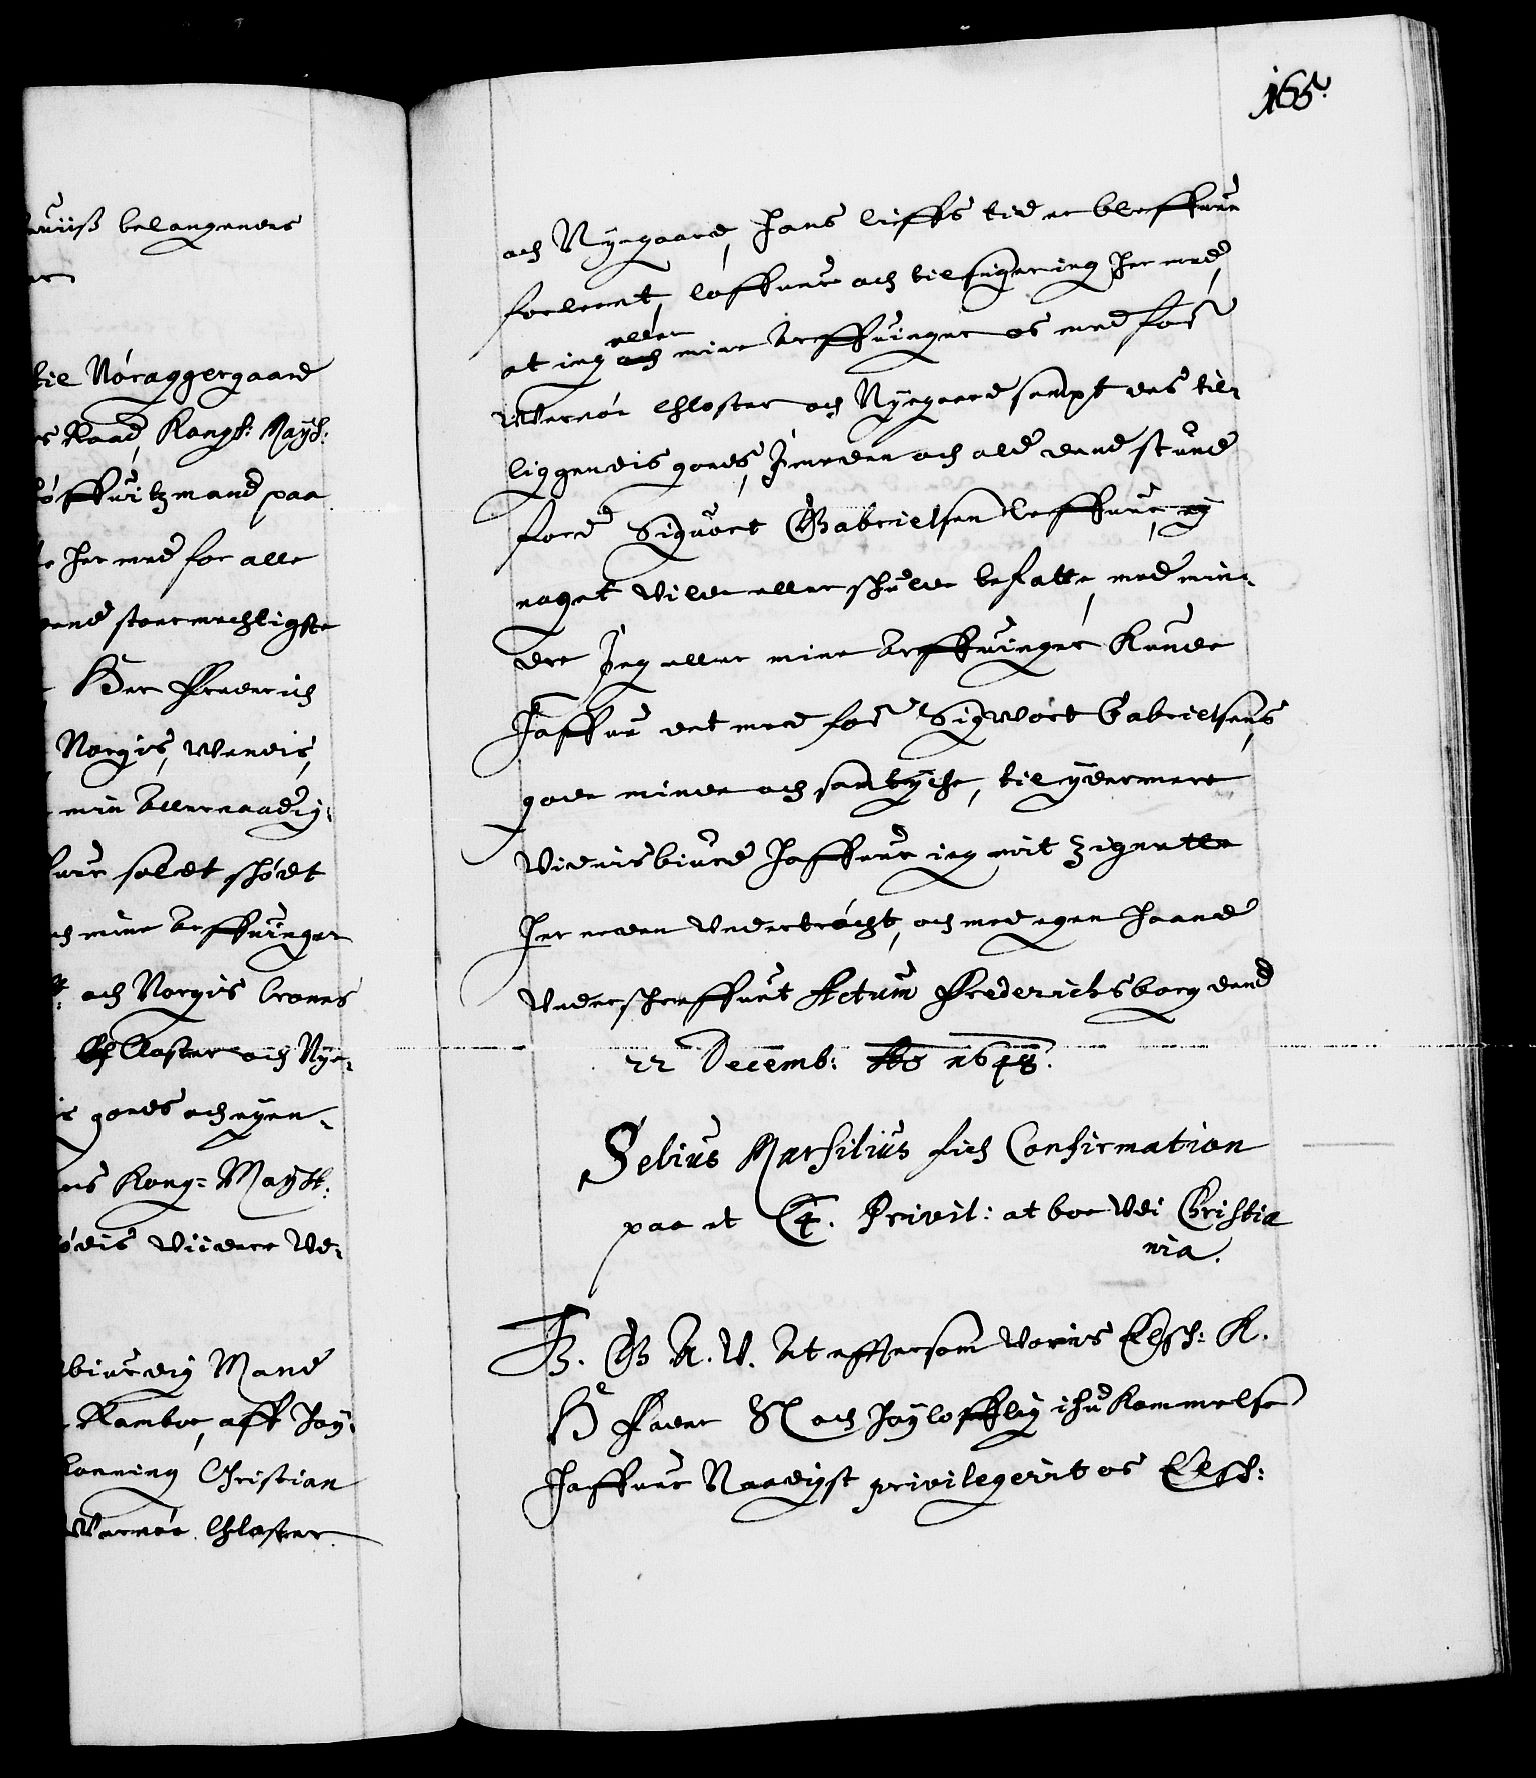 uiiß belangendes
er
til Nöraggergaard
s Raad, Kongl: Mayt:
höffuitzmand paa
her med for alle
dend stoermechtigste
Her Frederich
Norgis, Wendis,
min Allernaadig-
soldt schödt
och mine Arffuinger
och Norgis Crones
Closter och Nye-
goeds och eyen-
Kong: Mayst:
ödis viidere Ud-
biurdig Mand
Ramboe, aff Höy-
Konning Christian
Warnöe Chloster
165.
och Nyegaard, hans liffs tid er bleffuen
forleent, loffuer och tilsiger ieg her med,
at ieg och eller mine Arffuinger os med for:
Warnöe Chloster och Nyegaard sampt des til-
liggendis goeds, Jmeden och ald dend stund
ford Siguort Gabrielsen leffuer, ey
noget vilde eller schulde befatte, med min-
dre Jeg eller mine Arffuinger kunde
haffue det med for: Sigwort Gabrielsens
gode minde och samtyche, til ydermere
Vidnisbiurd haffuer ieg mit Zignette
her neden Undertröcht, och med egen haand
Underschreffuet Actum Frederichsborg dend
22 Decemb: Ao 1648.
Selius Marsilius fich Confirmation
paa et C4. Privil: at boe Udi Christia
nia.
F. G A. V. At eftersom Woris Elsch: K.
Hr Fader Sl och Höyloflig ihukommelse
haffuer Naadigst privilegerit os Elsch: